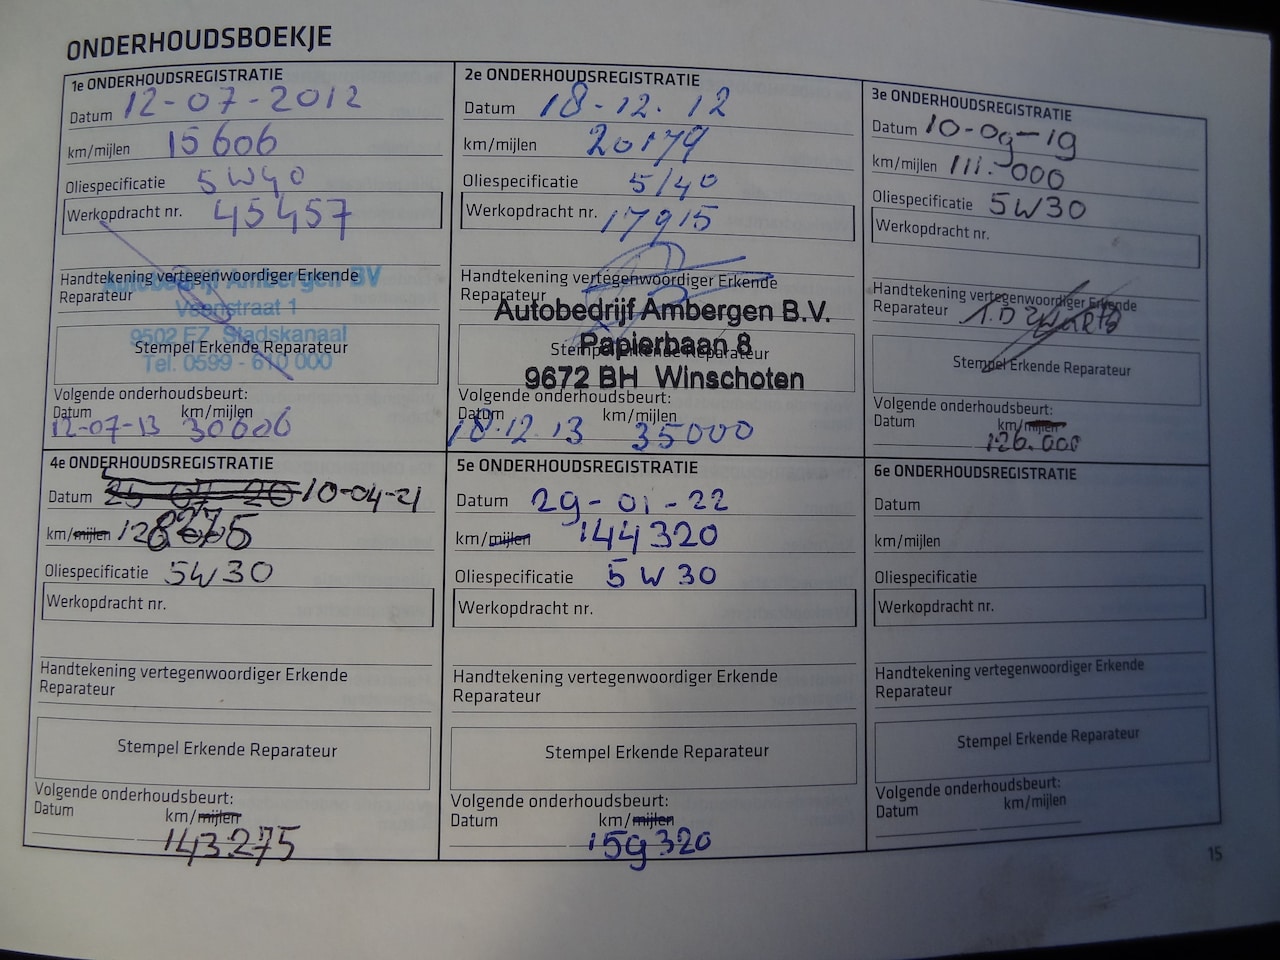 ONDERHOUDSBOEKJE
1e ONDERHOUDSREGISTRATIE
Datum 12-07-2012
km/mijlen 15606
Oliespecificatie 5W40
Werkopdracht nr. 45457
Handtekening vertegenwoordiger Erkende
Reparateur
Autobedrijf Ambergen BV
Veenstraat 1
9502 EZ Stadskanaal
Stempel Erkende Reparateur
Tel. 0599 - 610 000
Volgende onderhoudsbeurt:
Datum km/mijlen
12-07-13 30606
2e ONDERHOUDSREGISTRATIE
Datum 18-12.12
km/mijlen 20179
Oliespecificatie 5/40
Werkopdracht nr. 17915
Handtekening vertegenwoordiger Erkende
Reparateur
Autobedrijf Ambergen B.V.
Papierbaan 8
Stempel Erkende Reparateur
9672 BH Winschoten
Volgende onderhoudsbeurt:
Datum km/mijlen
18.12.13 35000
3e ONDERHOUDSREGISTRATIE
Datum 10-09-19
km/mijlen 111.000
Oliespecificatie 5W30
Werkopdracht nr.
Handtekening vertegenwoordiger Erkende
Reparateur
Stempel Erkende Reparateur
Volgende onderhoudsbeurt:
Datum km/mijlen
126.000
4e ONDERHOUDSREGISTRATIE
Datum 10-04-21
km/mijlen 128275
Oliespecificatie 5W30
Werkopdracht nr.
Handtekening vertegenwoordiger Erkende
Reparateur
Stempel Erkende Reparateur
Volgende onderhoudsbeurt:
Datum km/mijlen
143275
5e ONDERHOUDSREGISTRATIE
Datum 29-01-22
km/mijlen 144320
Oliespecificatie 5W30
Werkopdracht nr.
Handtekening vertegenwoordiger Erkende
Reparateur
Stempel Erkende Reparateur
Volgende onderhoudsbeurt:
Datum km/mijlen
159320
6e ONDERHOUDSREGISTRATIE
Datum
km/mijlen
Oliespecificatie
Werkopdracht nr.
Handtekening vertegenwoordiger Erkende
Reparateur
Stempel Erkende Reparateur
Volgende onderhoudsbeurt:
Datum km/mijlen
15